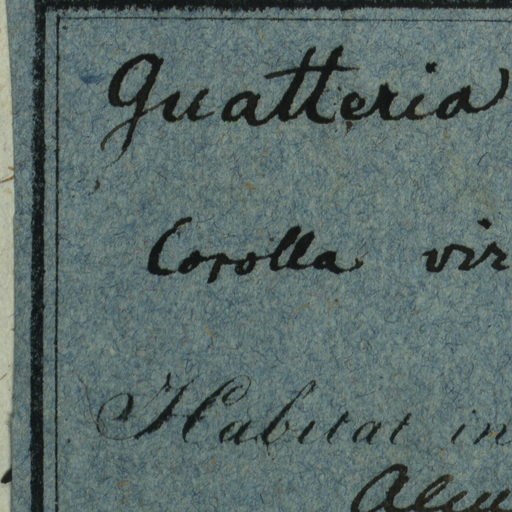 Guatteria
Corolla vir
Habitat in